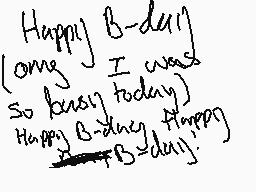 Happy B-day
(omg I was
so busy today)
Happy B-day Happy
B-day!